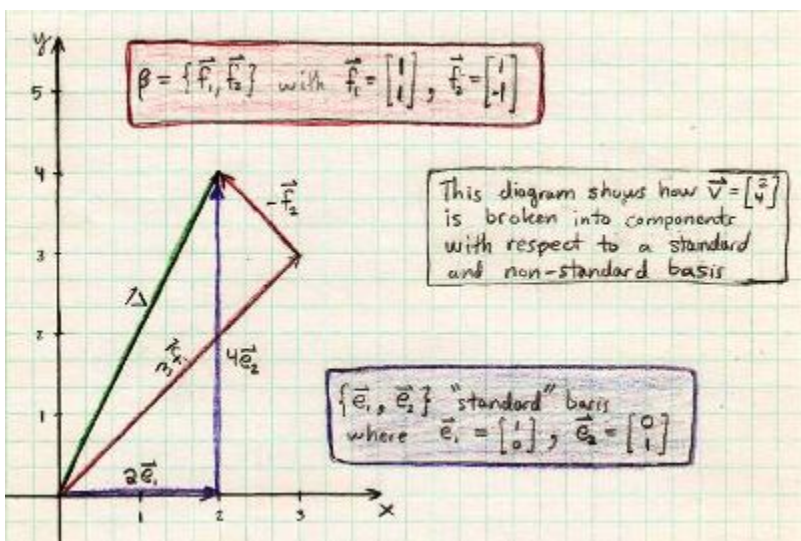 y
β = { f⃗₁, f⃗₂ } with f⃗₁ = [1 1], f⃗₂ = [1 -1]
5
4
3
2
1
This diagram shows how v⃗ = [2 4]
is broken into components
with respect to a standard
and non-standard basis
-f⃗₂
v⃗
3f⃗₁
4e⃗₂
{ e⃗₁, e⃗₂ } "standard" basis
where e⃗₁ = [1 0], e⃗₂ = [0 1]
2e⃗₁
1 2 3 x